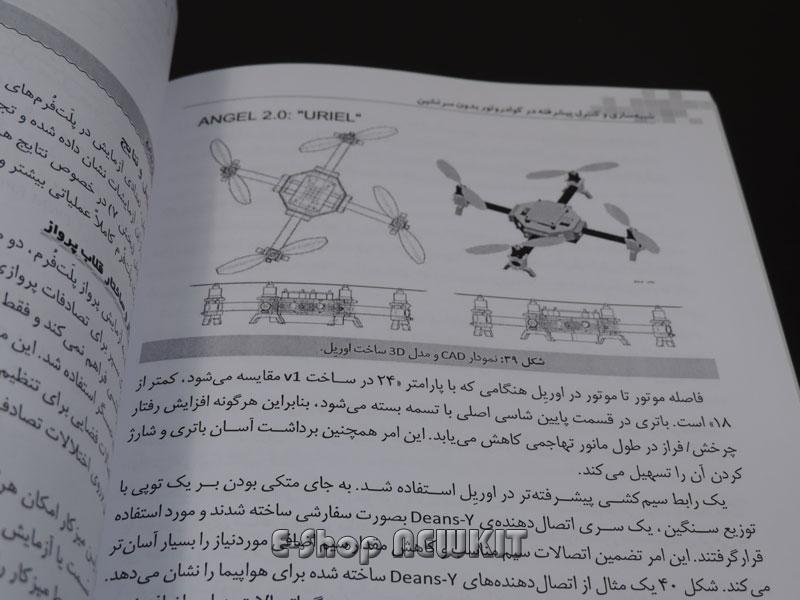 شبیه‌سازی و کنترل پیشرفته در کوادروتور بدون سرنشین
ANGEL 2.0: "URIEL"
شکل ۳۹: نمودار CAD و مدل 3D ساخت اوریل.
فاصله موتور تا موتور در اوریل هنگامی که با پارامتر "۲۴ در ساخت v1 مقایسه می‌شود، کمتر از
"۱۸ است. باتری در قسمت پایین شاسی اصلی با تسمه بسته می‌شود، بنابراین هرگونه افزایش رفتار
چرخش/فراز در طول مانور تهاجمی کاهش می‌یابد. این امر همچنین برداشت آسان باتری و شارژ
کردن آن را تسهیل می‌کند.
یک رابط سیم‌کشی پیشرفته‌تر در اوریل استفاده شد. به جای متکی بودن بر یک توپی با
توزیع سنگین، یک سری اتصال‌دهنده‌ی Deans-Y بصورت سفارشی ساخته شدند و مورد استفاده
قرار گرفتند. این امر تضمین اتصالات سیم مناسب و کاهش مقدار سیم اضافی موردنیاز را بسیار آسان‌تر
می‌کند. شکل ۴۰ یک مثال از اتصال‌دهنده‌های Deans-Y ساخته شده برای هواپیما را نشان می‌دهد.
و نتایج
آزمایش در پلَت‌فُرم‌های
نشان داده شده و
۷) در خصوص نتایج
کاملاً عملیاتی بیشتر و
ساختار قلاب پرواز
آزمایش پرواز پلَت‌فُرم، دو
برای تصادفات پروازی
فراهم نمی‌کند و فقط
استفاده شد. این
برای تنظیم
اختلالات تصادف
میزکار امکان
یا آزمایش
E-Shop NEWKIT